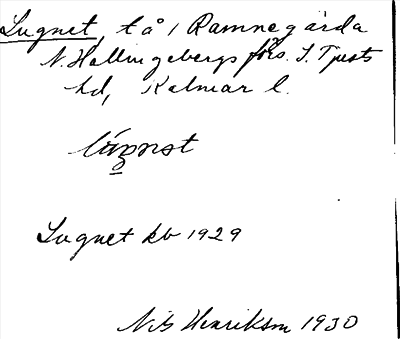 Lugnet, t å 1 Ramnegärda
N. Hallingebergs förs. S. Tjusts
hd, Kalmar l.
Lugnet kb 1929
Nils Henrikson 1930